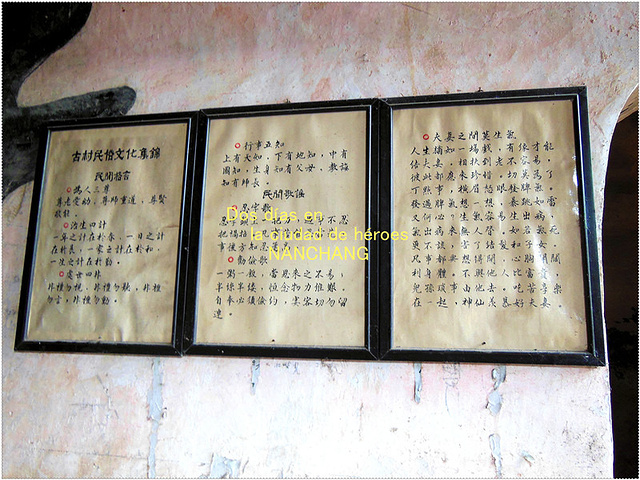 古村民俗文化集錦
民間格言
爲人三尊
尊老愛幼、尊師重道、尊賢
敬能。
治生四計
一年之計在於春、一日之計
在於晨、一家之計在於和、
一生之計在於勤。
處世四非
非禮勿視、非禮勿歌、非禮
勿言、非禮勿動。
行事五知
上有天知、下有地知、中有
國知、生身知有父母、教誨
知有師長。
民間歌謡
忍字歌
勤儉歌
一粥一飯、當思來之不易、
半絲半縷、恒念物力維艱。
自奉必須儉約、宴客切勿留
連。
夫妻之間莫生氣
人生猶如一場戲、有緣才能
倍夫妻、相扶到老不容易、
彼此都應來珍惜。切莫爲了
丁點事、橫眉怒眼發脾氣。
發過脾氣想一想、
又何必？生氣容易出生病、
氣出病來無人替、如若氣死
更不該、害了結髮和子女、
凡事都要想得開、心胸開闊
利身體。不與他人比富貴、
兒孫瑣事由他去。吃苦享樂
在一起、神仙羨慕好夫妻。
Dos días en
la ciudad de héroes
NANCHANG